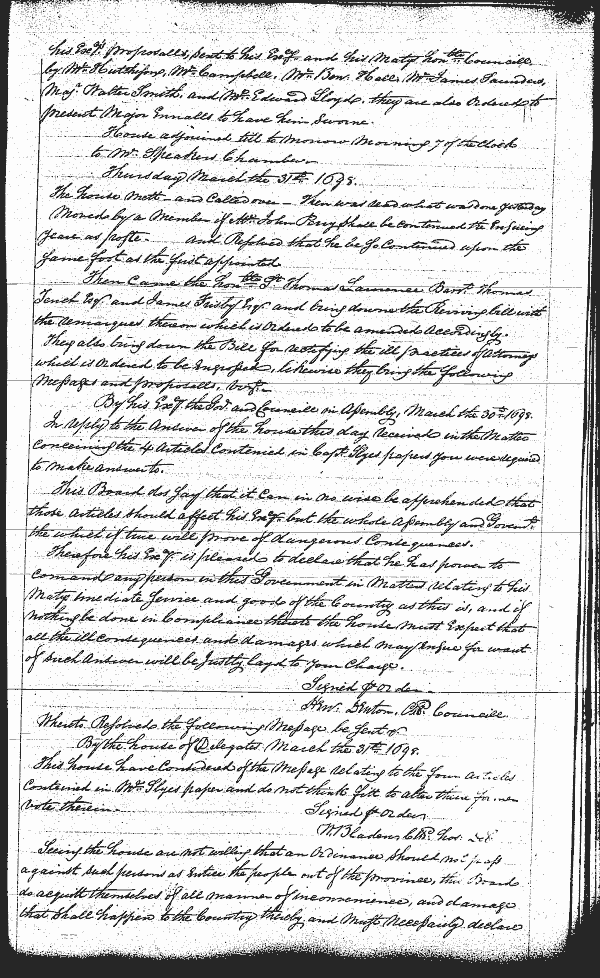 his Exc.y proposalls, sent to his Exc.y and his Maty hon.ble Councill
by Mr. Hutchison, Mr. Campbell, Mr. Ben. Hall, Mr. James Saunders,
Maj.r Walter Smith, and Mr. Edward Lloyd, they are also Ordered to
present Major Ennalls to have him Sworne.
House adjourned till to Morrow Morning 7 of the Clock
to Mr. Speakers Chamber
Thursday March the 31.th 1698.
The house Mett and Called over Then was read what was done yesterday
Moved by a Member if Mr. John Perry shall be continued the Ensuing
year as poste. and Resolved that he be so Continued upon the
same foot as the first appointed
Then Came the hon.ble S.r Thomas Laurence Baro.t Thomas
Tench Esq.r and James Frisby Esq.r and bring downe the Reviving bill with
the remarques thereon which is ordered to be amended accordingly.
They also bring down the Bill for rectifying the ill practices of Attorneys
which is Ordered to be Engrossed, likewise they bring the following
Messages and proposalls, viz.t
By his Exc.y the Gov.r and Councill in Assembly, March the 30.th 1698.
In reply to the Answer of the house this day received in the Matter
concerning the 4 Articles Contained in Capt. Slyes papers you were required
to make answer to.
This Board dos say that it Can in no wise be apprehended that
those Articles should affect his Exc.y but the whole Assembly and Governt.
the which if true will prove of dangerous Consequences.
Therefore his Exc.y is pleased to declare that he has power to
comand any person in this Government in Matters relating to his
Maty imediate service and good of the Country as this is, and if
nothing be done in Compliance thereto the house Must Expect that
all the ill consequences and damages which may ensue for want
of such Answer will be Justly layd to your Charge.
Signed p Order
Hen: Denton, Clk. Councill
Whereto Resolved the following Message be sent
By the house of Delegates March the 31.th 1698.
This house have Considered of the Message relating to the four Articles
Contained in Mr. Slyes paper and do not think fitt to alter there former
vote therein.
Signed p Order
W Bladen Clk. hos. Del.
Seeing the house are not willing that an Ordinance should pass
against such persons as Entice the people out of the province, this Board
do acquitt themselves of all manner of inconvenience, and damage
that shall happen to the Country thereby and Must Necessarily declare